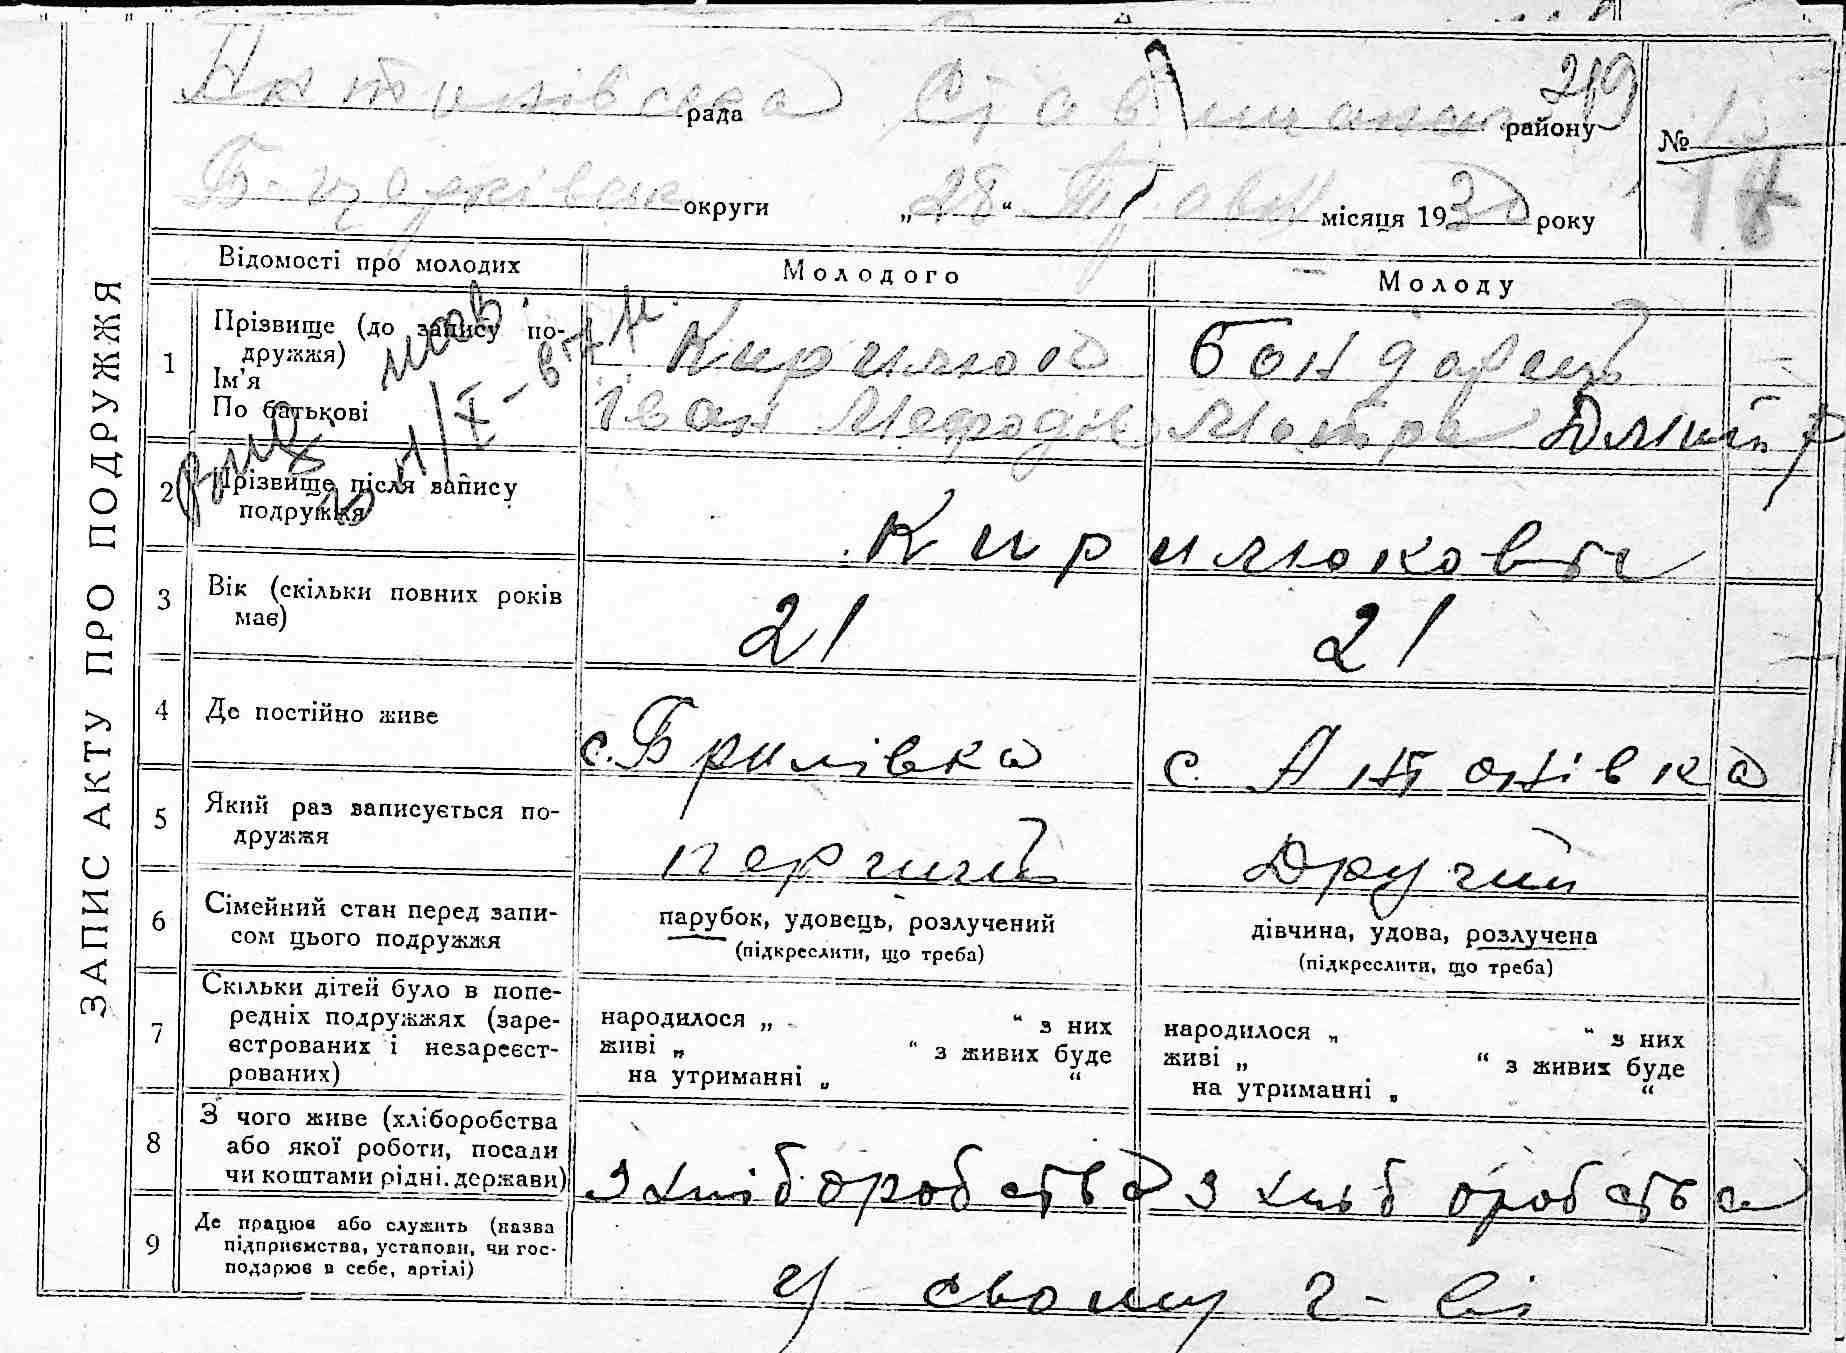 Антонівська рада Ставищанськ району 219 №
Б-Церківськ округи „28“ Травн місяця 1930 року 18
ЗАПИС АКТУ ПРО ПОДРУЖЖЯ
Відомості про молодих Молодого Молоду
1 Прізвище (до запису по-
дружжя)
Ім'я
По батькові
Кирилюк Бондарець
Іван Мефодів Мотря Дмитр
2 Прізвище після запису
подружжя
Кирилюкови
3 Вік (скільки повних років
має)
21 21
4 Де постійно живе с. Брилівка с. Антонівка
5 Який раз записується по-
дружжя
перший Другий
6 Сімейний стан перед запи-
сом цього подружжя
парубок, удовець, розлучений
(підкреслити, що треба)
дівчина, удова, розлучена
(підкреслити, що треба)
7 Скільки дітей було в попе-
редніх подружжях (заре-
єстрованих і незареєст-
рованих)
народилося „ “ з них
живі „ “ з живих буде
на утриманні „ “
народилося „ “ з них
живі „ “ з живих буде
на утриманні „ “
8 З чого живе (хліборобства
або якої роботи, посади
чи коштами рідні. держави)
з хліборобства з хліборобства
9 Де працює або служить (назва
підприємства, установи, чи гос-
подарює в себе, артілі)
у свому г-ві